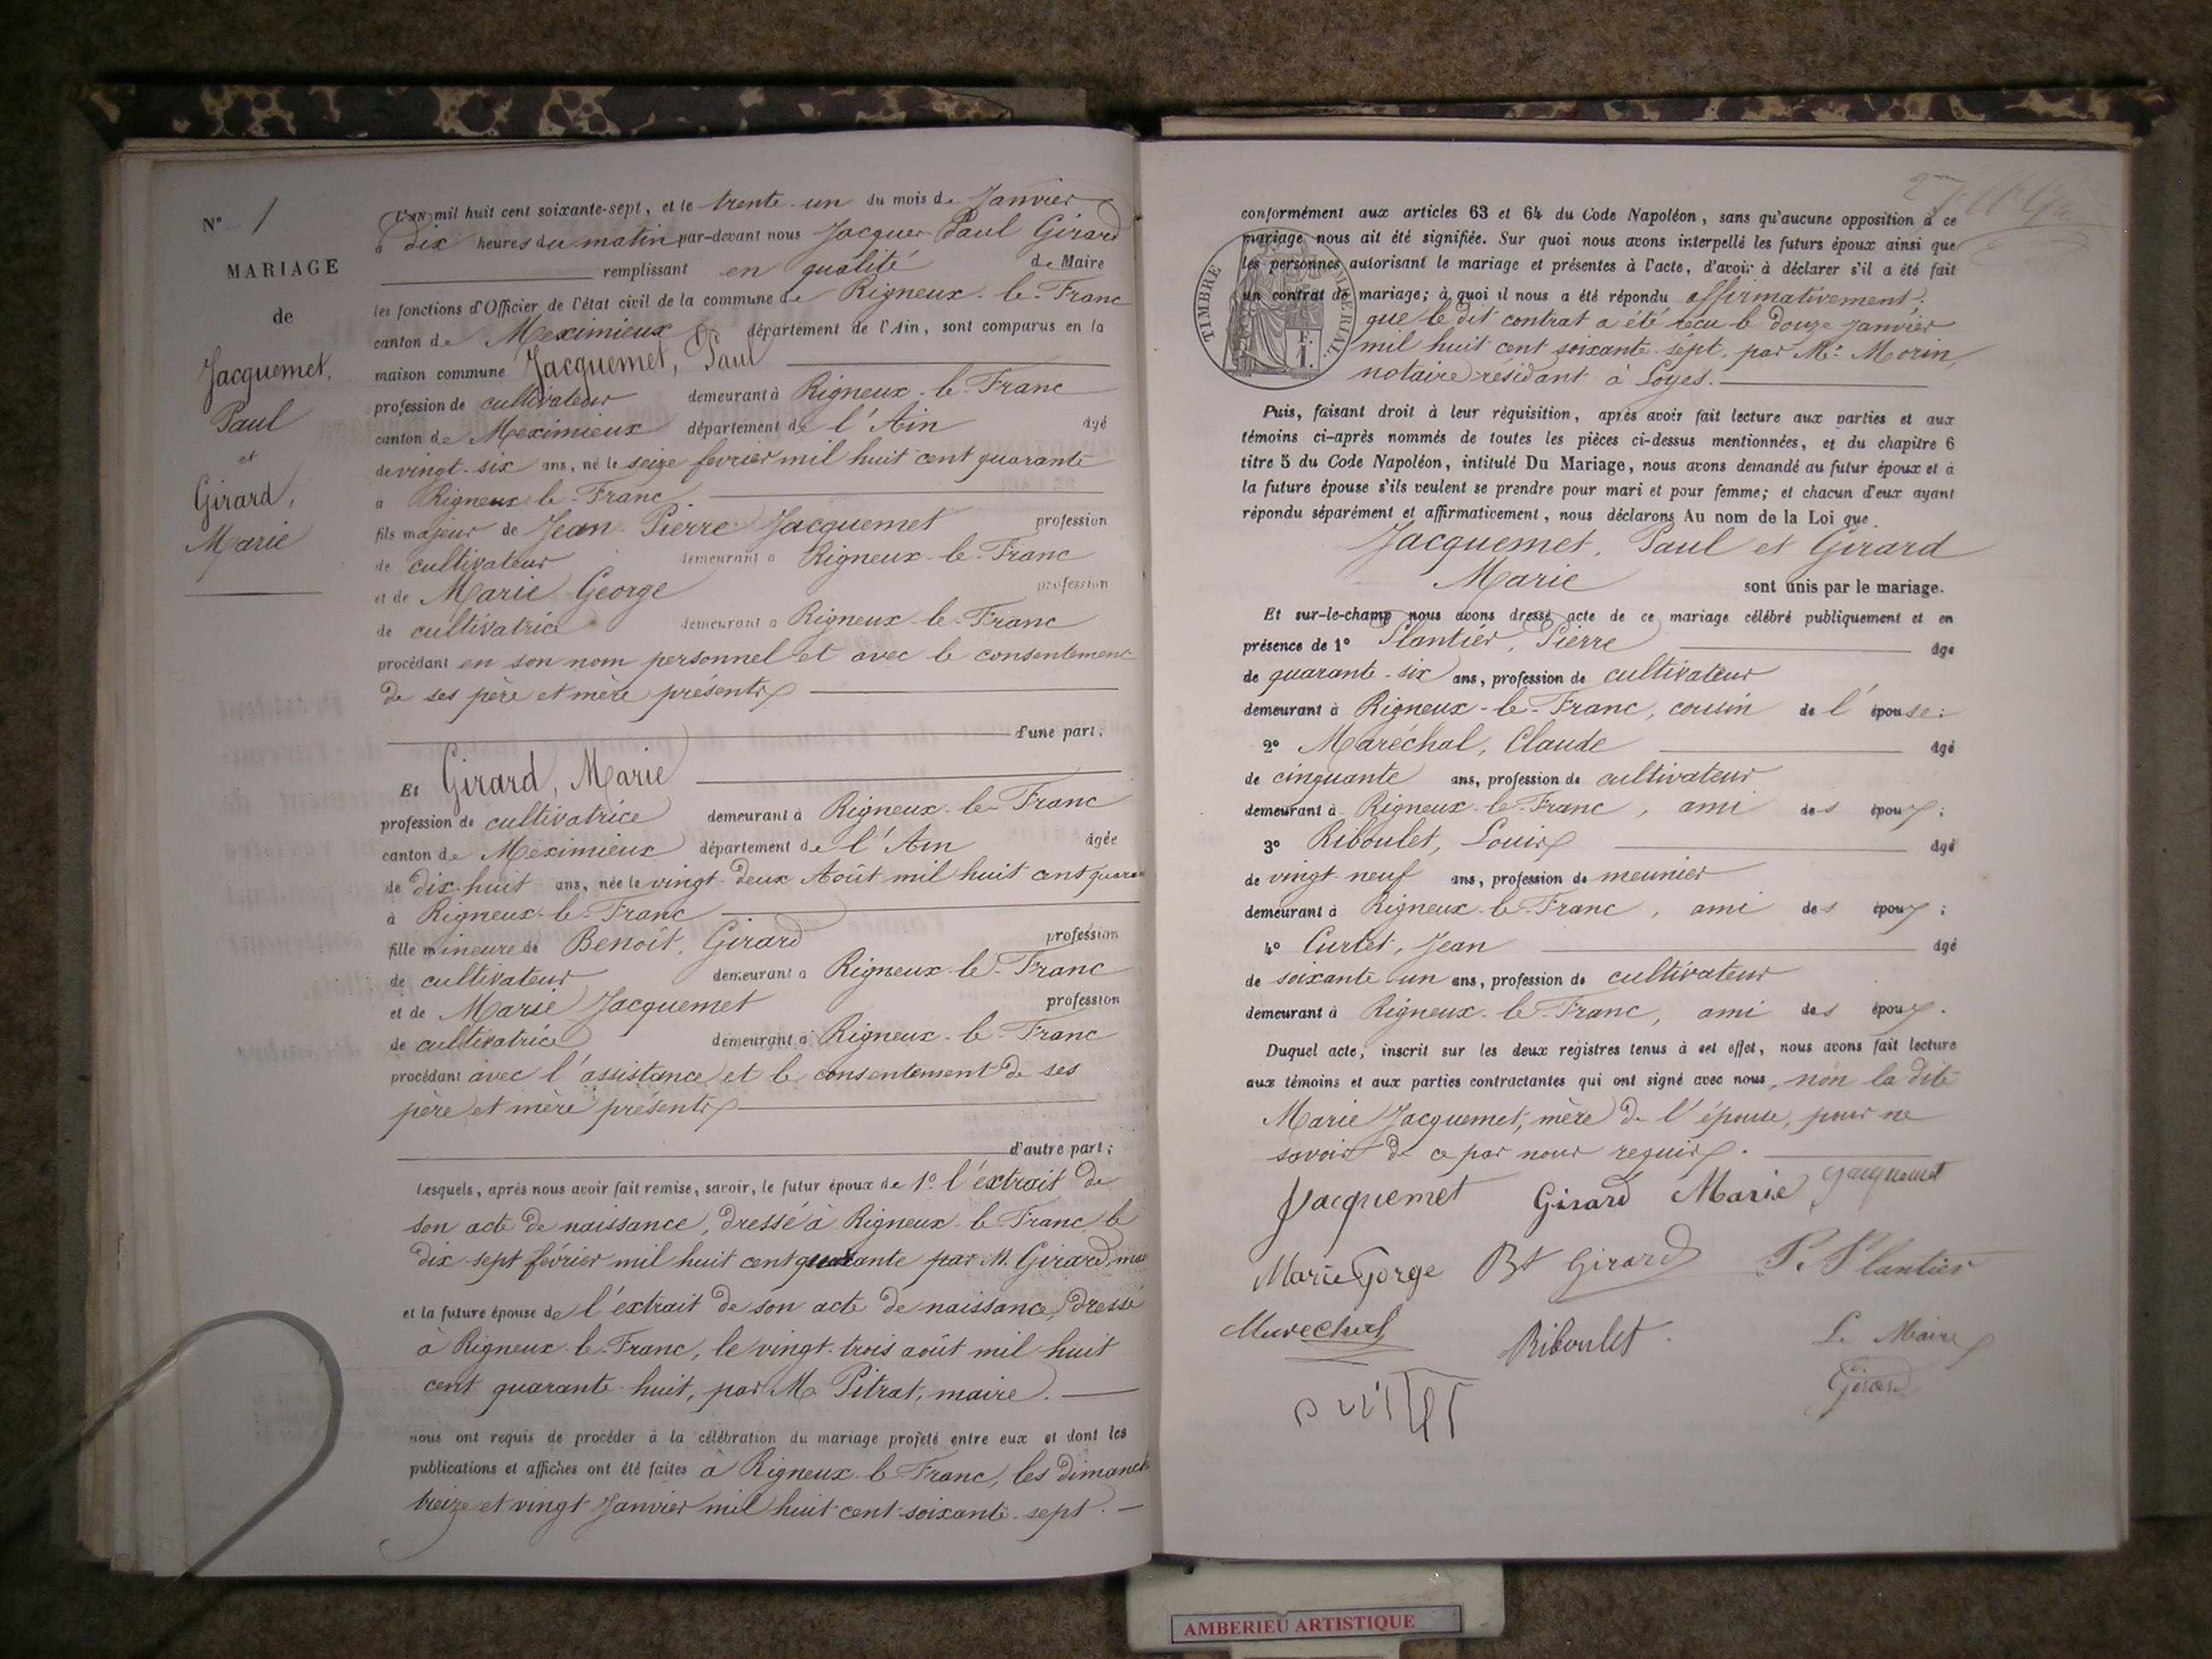 N° 1
MARIAGE
de
Jacquemet,
Paul
et
Girard,
Marie
L'AN mil huit cent soixante-sept, et le trente-un du mois de Janvier
à dix heures du matin par-devant nous Jacques Paul Girard
remplissant en qualité de Maire
les fonctions d'Officier de l'état civil de la commune de Rigneux-le-Franc
canton de Meximieux département de l'Ain, sont comparus en la
maison commune Jacquemet, Paul
profession de cultivateur demeurant à Rigneux-le-Franc
canton de Meximieux département de l'Ain âgé
de vingt-six ans, né le seize fevrier mil huit cent quarante
a Rigneux-le-Franc
fils majeur de Jean-Pierre Jacquemet profession
de cultivateur demeurant a Rigneux-le-Franc
et de Marie George profession
de cultivatrice demeurant a Rigneux-le-Franc
procédant en son nom personnel et avec le consentement
de ses père et mère présents
d'une part.
Et Girard, Marie
profession de cultivatrice demeurant à Rigneux-le-Franc
canton de Meximieux département de l'Ain âgée
de dix-huit ans, née le vingt-deux Août mil huit cent
à Rigneux-le-Franc
fille mineure de Benoît Girard profession
de cultivateur demeurant a Rigneux-le-Franc
et de Marie Jacquemet profession
de cultivatrice demeurant à Rigneux-le-Franc
procédant avec l'assistance et le consentement de ses
père et mère présents
d'autre part;
Lesquels, après nous avoir fait remise, savoir, le futur époux de 1° l'extrait de
son acte de naissance, dressé à Rigneux-le-Franc le
dix-sept février mil huit cent quarante par M. Girard,
et la future épouse de l'extrait de son acte de naissance, dressé
à Rigneux-le-Franc, le vingt-trois août mil huit
cent quarante-huit, par M. Pitrat, maire.
nous ont requis de procéder à la célébration du mariage projeté entre eux et dont les
publications et affiches ont été faites à Rigneux-le-Franc, les
treize et vingt Janvier mil huit cent soixante-sept.
conformément aux articles 63 et 64 du Code Napoléon, sans qu'aucune opposition à ce
mariage nous ait été signifiée. Sur quoi nous avons interpellé les futurs époux ainsi que
les personnes autorisant le mariage et présentes à l'acte, d'avoir à déclarer s'il a été fait
un contrat de mariage; à quoi il nous a été répondu affirmativement:
que le dit contrat a été reçu le douze Janvier
mil huit cent soixante-sept, par Me Morin,
notaire résidant à Loyes.
TIMBRE IMPERIAL
F.
1.
Puis, faisant droit à leur réquisition, après avoir fait lecture aux parties et aux
témoins ci-après nommés de toutes les pièces ci-dessus mentionnées, et du chapitre 6
titre 5 du Code Napoléon, intitulé Du Mariage, nous avons demandé au futur époux et à
la future épouse s'ils veulent se prendre pour mari et pour femme; et chacun d'eux ayant
répondu séparément et affirmativement, nous déclarons Au nom de la Loi que
Jacquemet, Paul et Girard
Marie sont unis par le mariage.
Et sur-le-champ nous avons dressé acte de ce mariage célébré publiquement et en
présence de 1° Plantier, Pierre âgé
de quarante-six ans, profession de cultivateur
demeurant à Rigneux-le-Franc, cousin de l'épouse:
2° Maréchal, Claude âgé
de cinquante ans, profession de cultivateur
demeurant à Rigneux-le-Franc, ami des époux;
3° Riboulet, Louis âgé
de vingt-neuf ans, profession de meunier
demeurant à Rigneux-le-Franc, ami des époux;
4° Curtet, Jean âgé
de soixante-un ans, profession de cultivateur
demeurant à Rigneux-le-Franc, ami des époux.
Duquel acte, inscrit sur les deux registres tenus à cet effet, nous avons fait lecture
aux témoins et aux parties contractantes qui ont signé avec nous, non la dite
Marie Jacquemet, mère de l'épouse, pour ne
savoir de ce par nous requis.
Jacquemet Girard Marie Jacquemet
Marie Gorge Bt Girard P. Plantier
Marechal Riboulet. Le Maire
Girard
AMBERIEU ARTISTIQUE